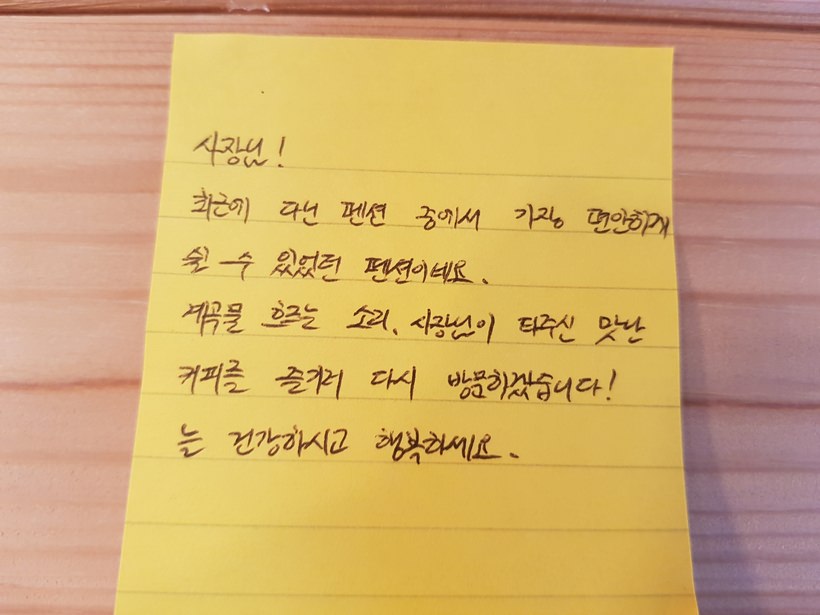 사장님!
최근에 다닌 펜션 중에서 가장 편안하게
쉴 수 있었던 펜션이네요.
계곡물 흐르는 소리, 사장님이 타주신 맛난
커피를 즐기러 다시 방문하겠습니다!
늘 건강하시고 행복하세요.